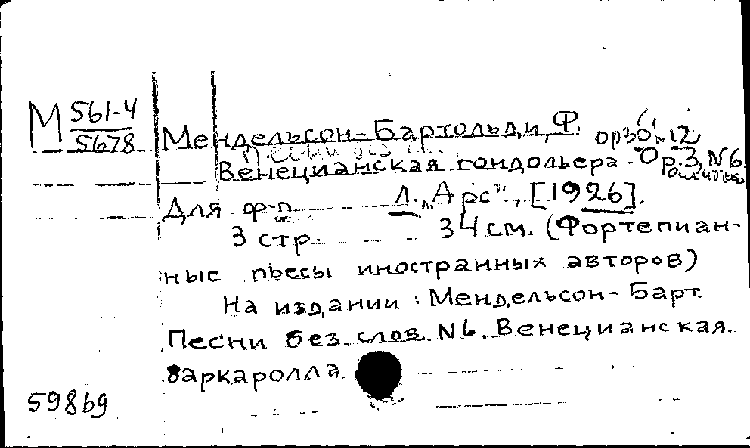 М 561-4
5678
Мендельсон-Бартольди, Ф. op30, 12
Венецианская гондольера - Ор.3, N6
Для ф-п Л. „Арс“, [1926].
3 стр. 34 см. (Фортепиан-
ные пьесы иностранных авторов)
На издании: Мендельсон-Барт.
Песни без слов. N6. Венецианская
баркаролла.
59869